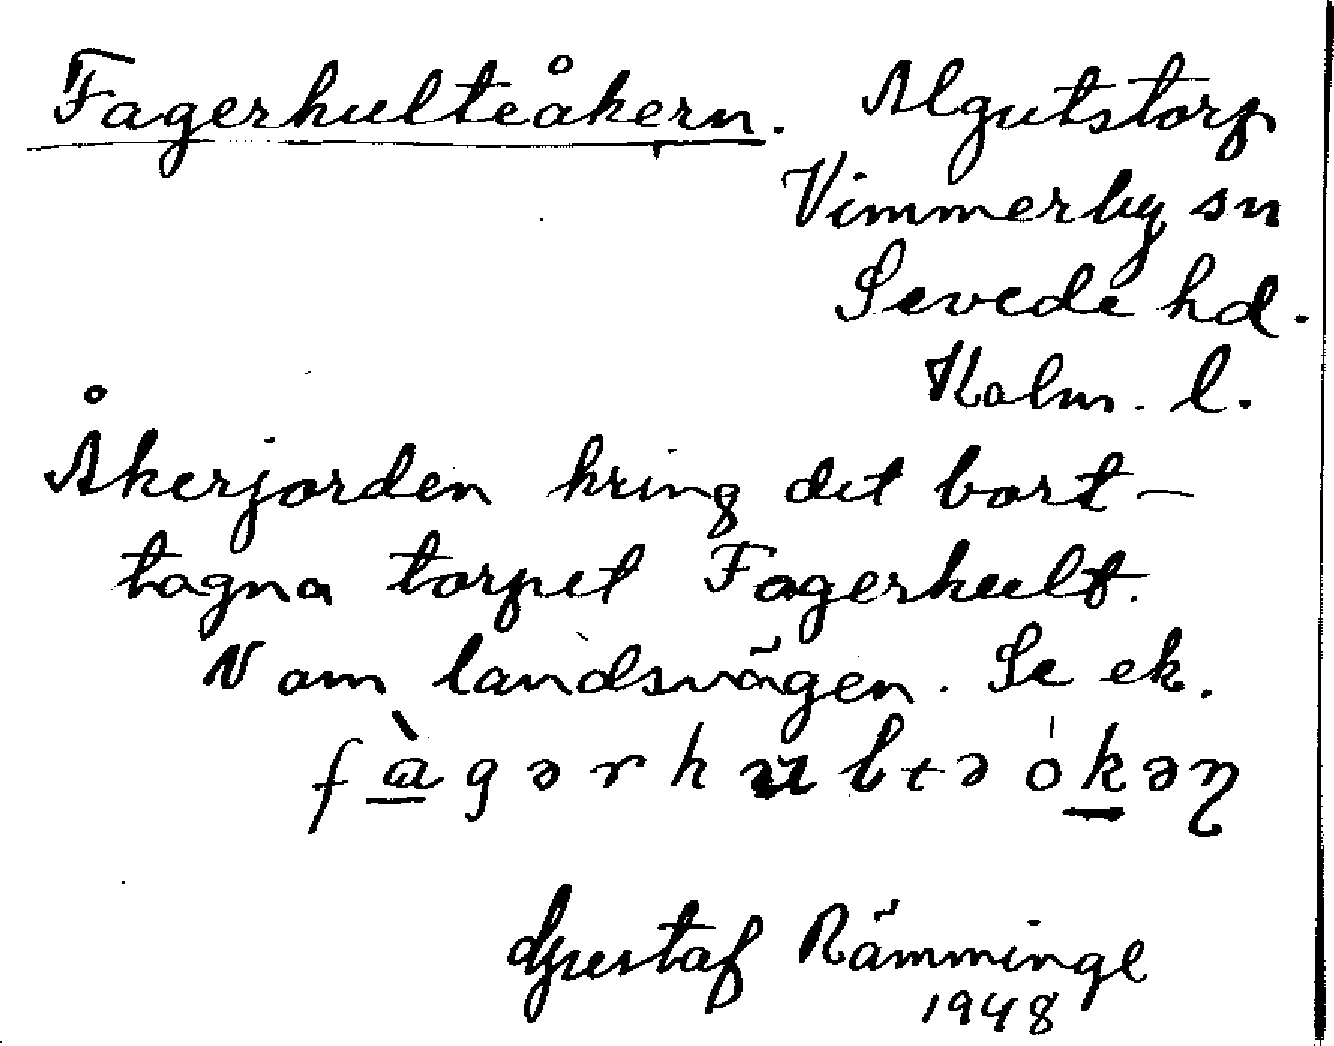 Fagerhulteåkern. Algutstorp
Vimmerby sn
Sevede hd.
Kalm. l.
Åkerjorden kring det bort-
tagna torpet Fagerhult.
N om landsvägen. Se ek.
fàgərhultəókəη
Gustaf Rämminge
1948